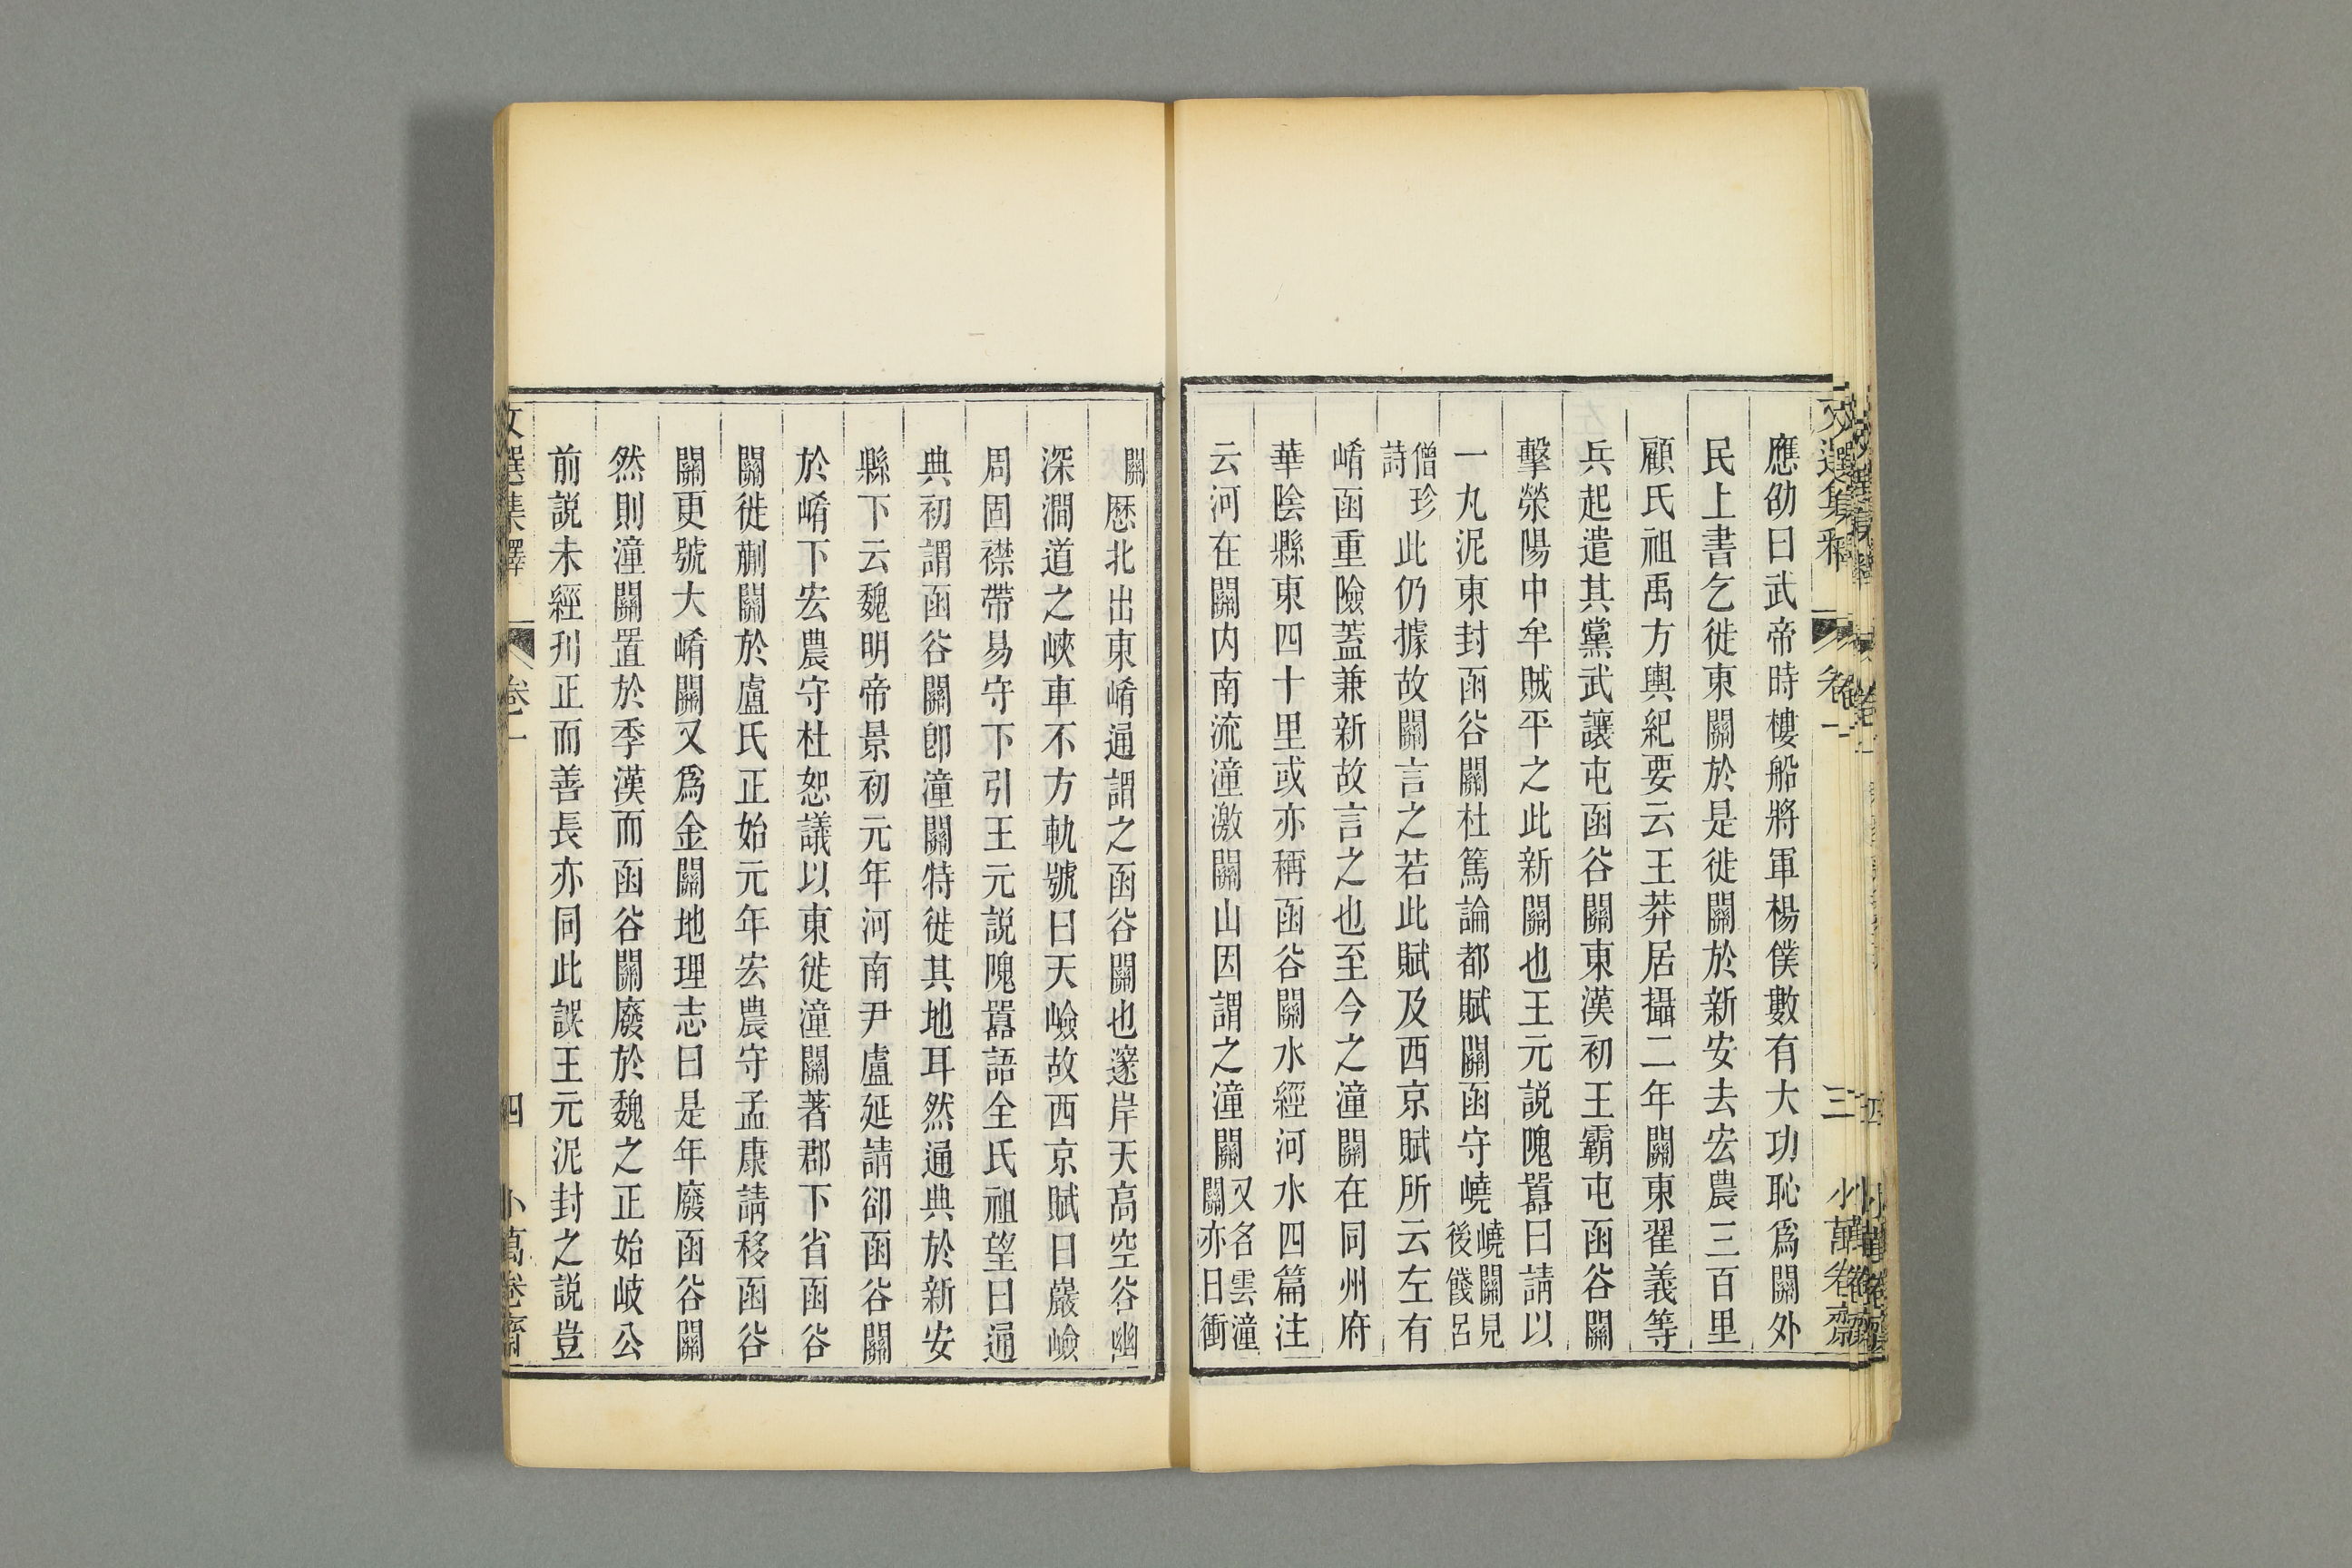 應劭曰武帝時樓船將軍楊僕數有大功恥爲關外
民上書乞徙東關於是徙關於新安去宏農三百里
顧氏祖禹方輿紀要云王莽居攝二年關東翟義等
兵起遣其黨武讓屯函谷關東漢初王霸屯函谷關
擊滎陽中牟賊平之此新關也王元説隗囂曰請以
一丸泥東封函谷關杜篤論都賦關函守嶢嶢關見後餞呂
僧珍詩此仍據故關言之若此賦及西京賦所云左有
崤函重險蓋兼新故言之也至今之潼關在同州府
華陰縣東四十里或亦稱函谷關水經河水四篇注
云河在關内南流潼激關山因謂之潼關又名雲潼關亦曰衝
關歷北出東崤通謂之函谷關也邃岸天高空谷幽
深澗道之峽車不方軌號曰天嶮故西京賦曰巖嶮
周固襟帶易守下引王元説隗囂語全氏祖望曰通
典初謂函谷關卽潼關特徙其地耳然通典於新安
縣下云魏明帝景初元年河南尹盧延請卻函谷關
於崤下宏農守杜恕議以東徙潼關著郡下省函谷
關徙蒯關於盧氏正始元年宏農守孟康請移函谷
關更號大崤關又爲金關地理志曰是年廢函谷關
然則潼關置於季漢而函谷關廢於魏之正始岐公
前説未經刋正而善長亦同此誤王元泥封之説豈
文選集釋 卷一 四 小萬卷齋